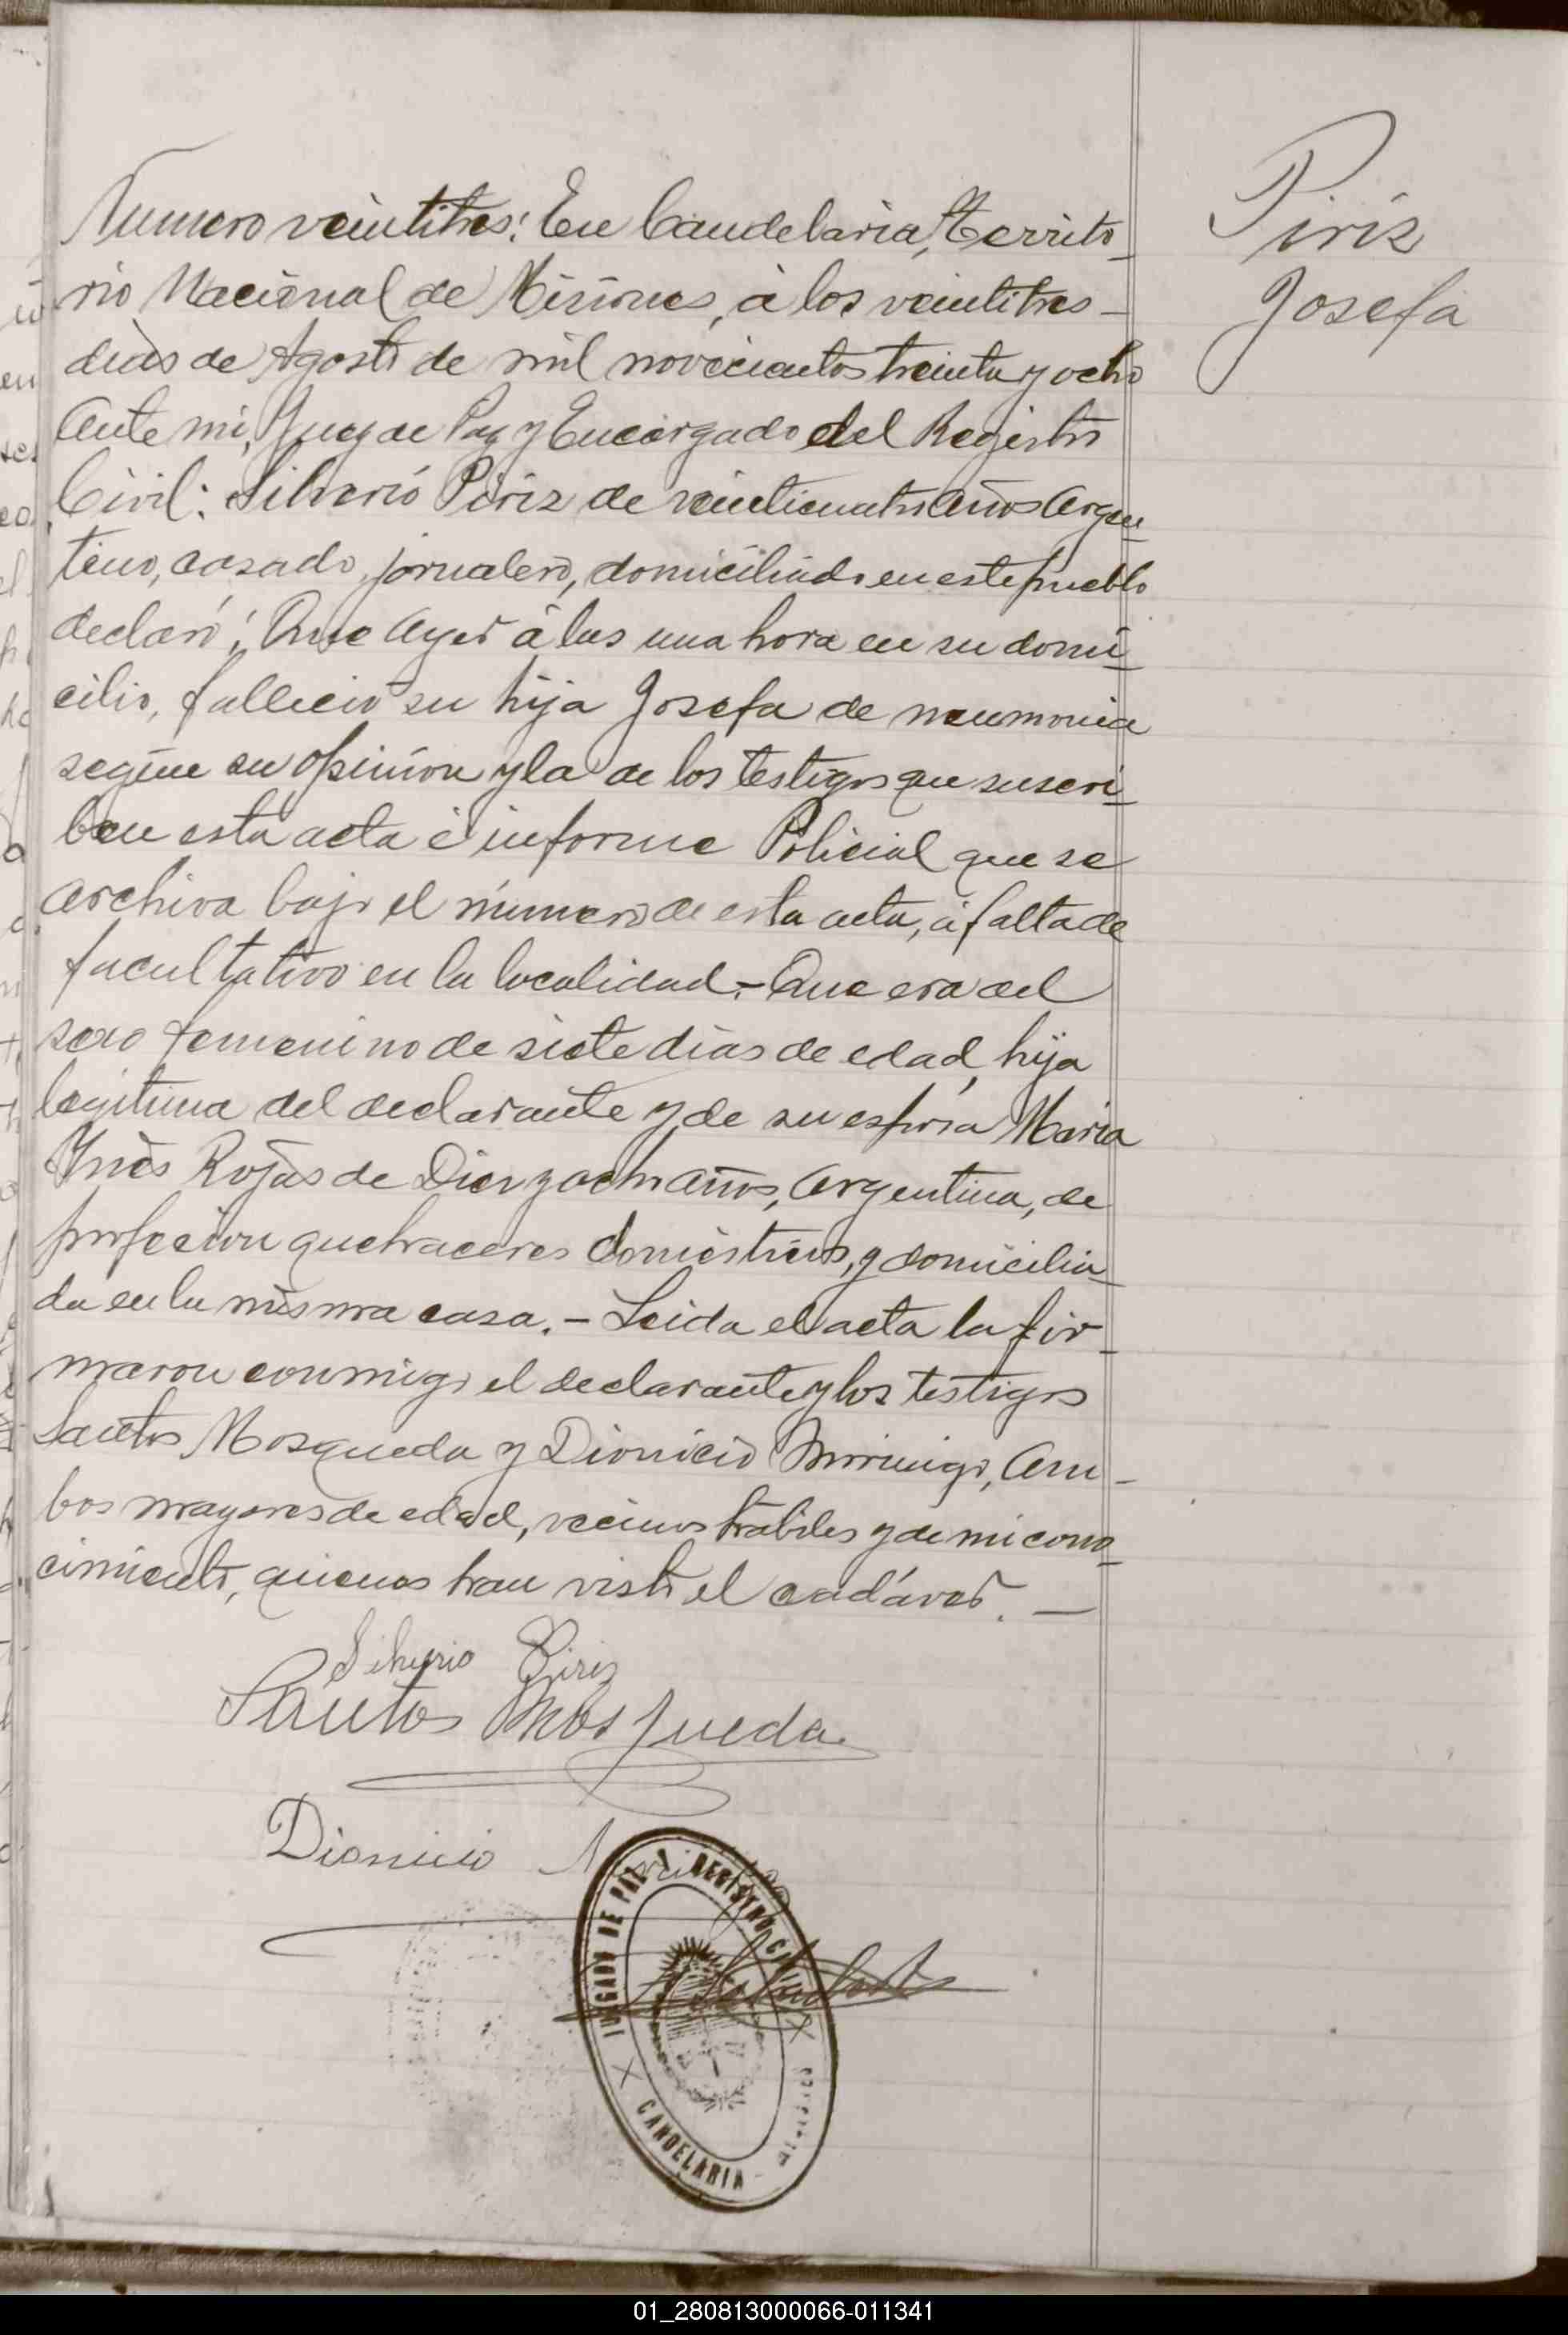 Piriz
Josefa
Numero veintitres: En Candelaria, Territo-
rio Nacional de Misiones, á los veintitres -
dias de Agosto de mil novecientos treinta y ocho
Ante mi, Juez de Paz y Encargado del Registro
Civil: Silverio Piriz de veinticuatro años Argen-
tino, casado, jornalero, domiciliado en este pueblo
declaró: Que ayer á las una hora en su domi-
cilio, falleció su hija Josefa de neumonia
según su opinion y la de los testigos que suscri-
ben esta acta é informe Policial que se
archiva bajo el número de esta acta, á falta de
facultativo en la localidad.- Que era del
sexo femenino de siete dias de edad, hija
legitima del declarante y de su esposa Maria
Ynés Rojas de Diez y ocho años, Argentina, de
profecion quehaceres domésticos, y domicilia-
da en la misma casa.- Leida el acta la fir-
maron conmigo el declarante y los testigos
Santos Mosqueda y Dionicio Morinigo, Am-
bos mayores de edad, vecinos habiles y de mi cono-
cimiento, quienes han visto el cadáver. -
Silverio Piriz
Santos Mosqueda
Dionicio
JUZGADO DE PAZ Y REGISTRO CIVIL
CANDELARIA
01_280813000066-011341